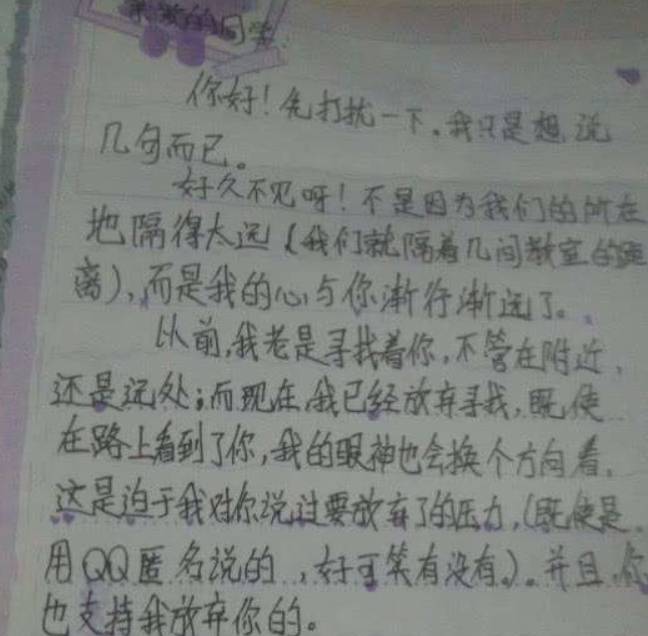 亲爱的同学:
你好！先打扰一下。我只是想说
几句而已。
好久不见呀！不是因为我们的所在
地隔得太远（我们就隔着几间教室的距
离），而是我的心与你渐行渐远了。
以前，我老是寻找着你，不管在附近，
还是远处；而现在，我已经放弃寻找，既使
在路上看到了你，我的眼神也会换个方向看。
这是迫于我对你说过要放弃了的压力，（既使是
用QQ匿名说的，好可笑有没有。）。并且，你
也支持我放弃你的。